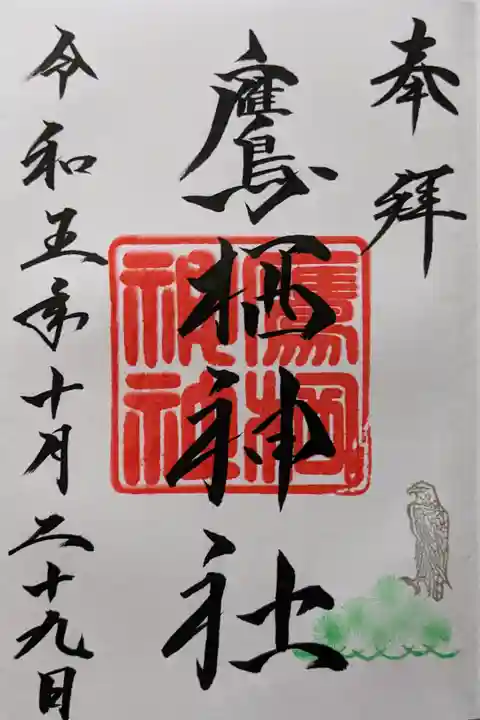 奉拝
鷹栖神社
鷹栖神社
令和五年十月二十九日